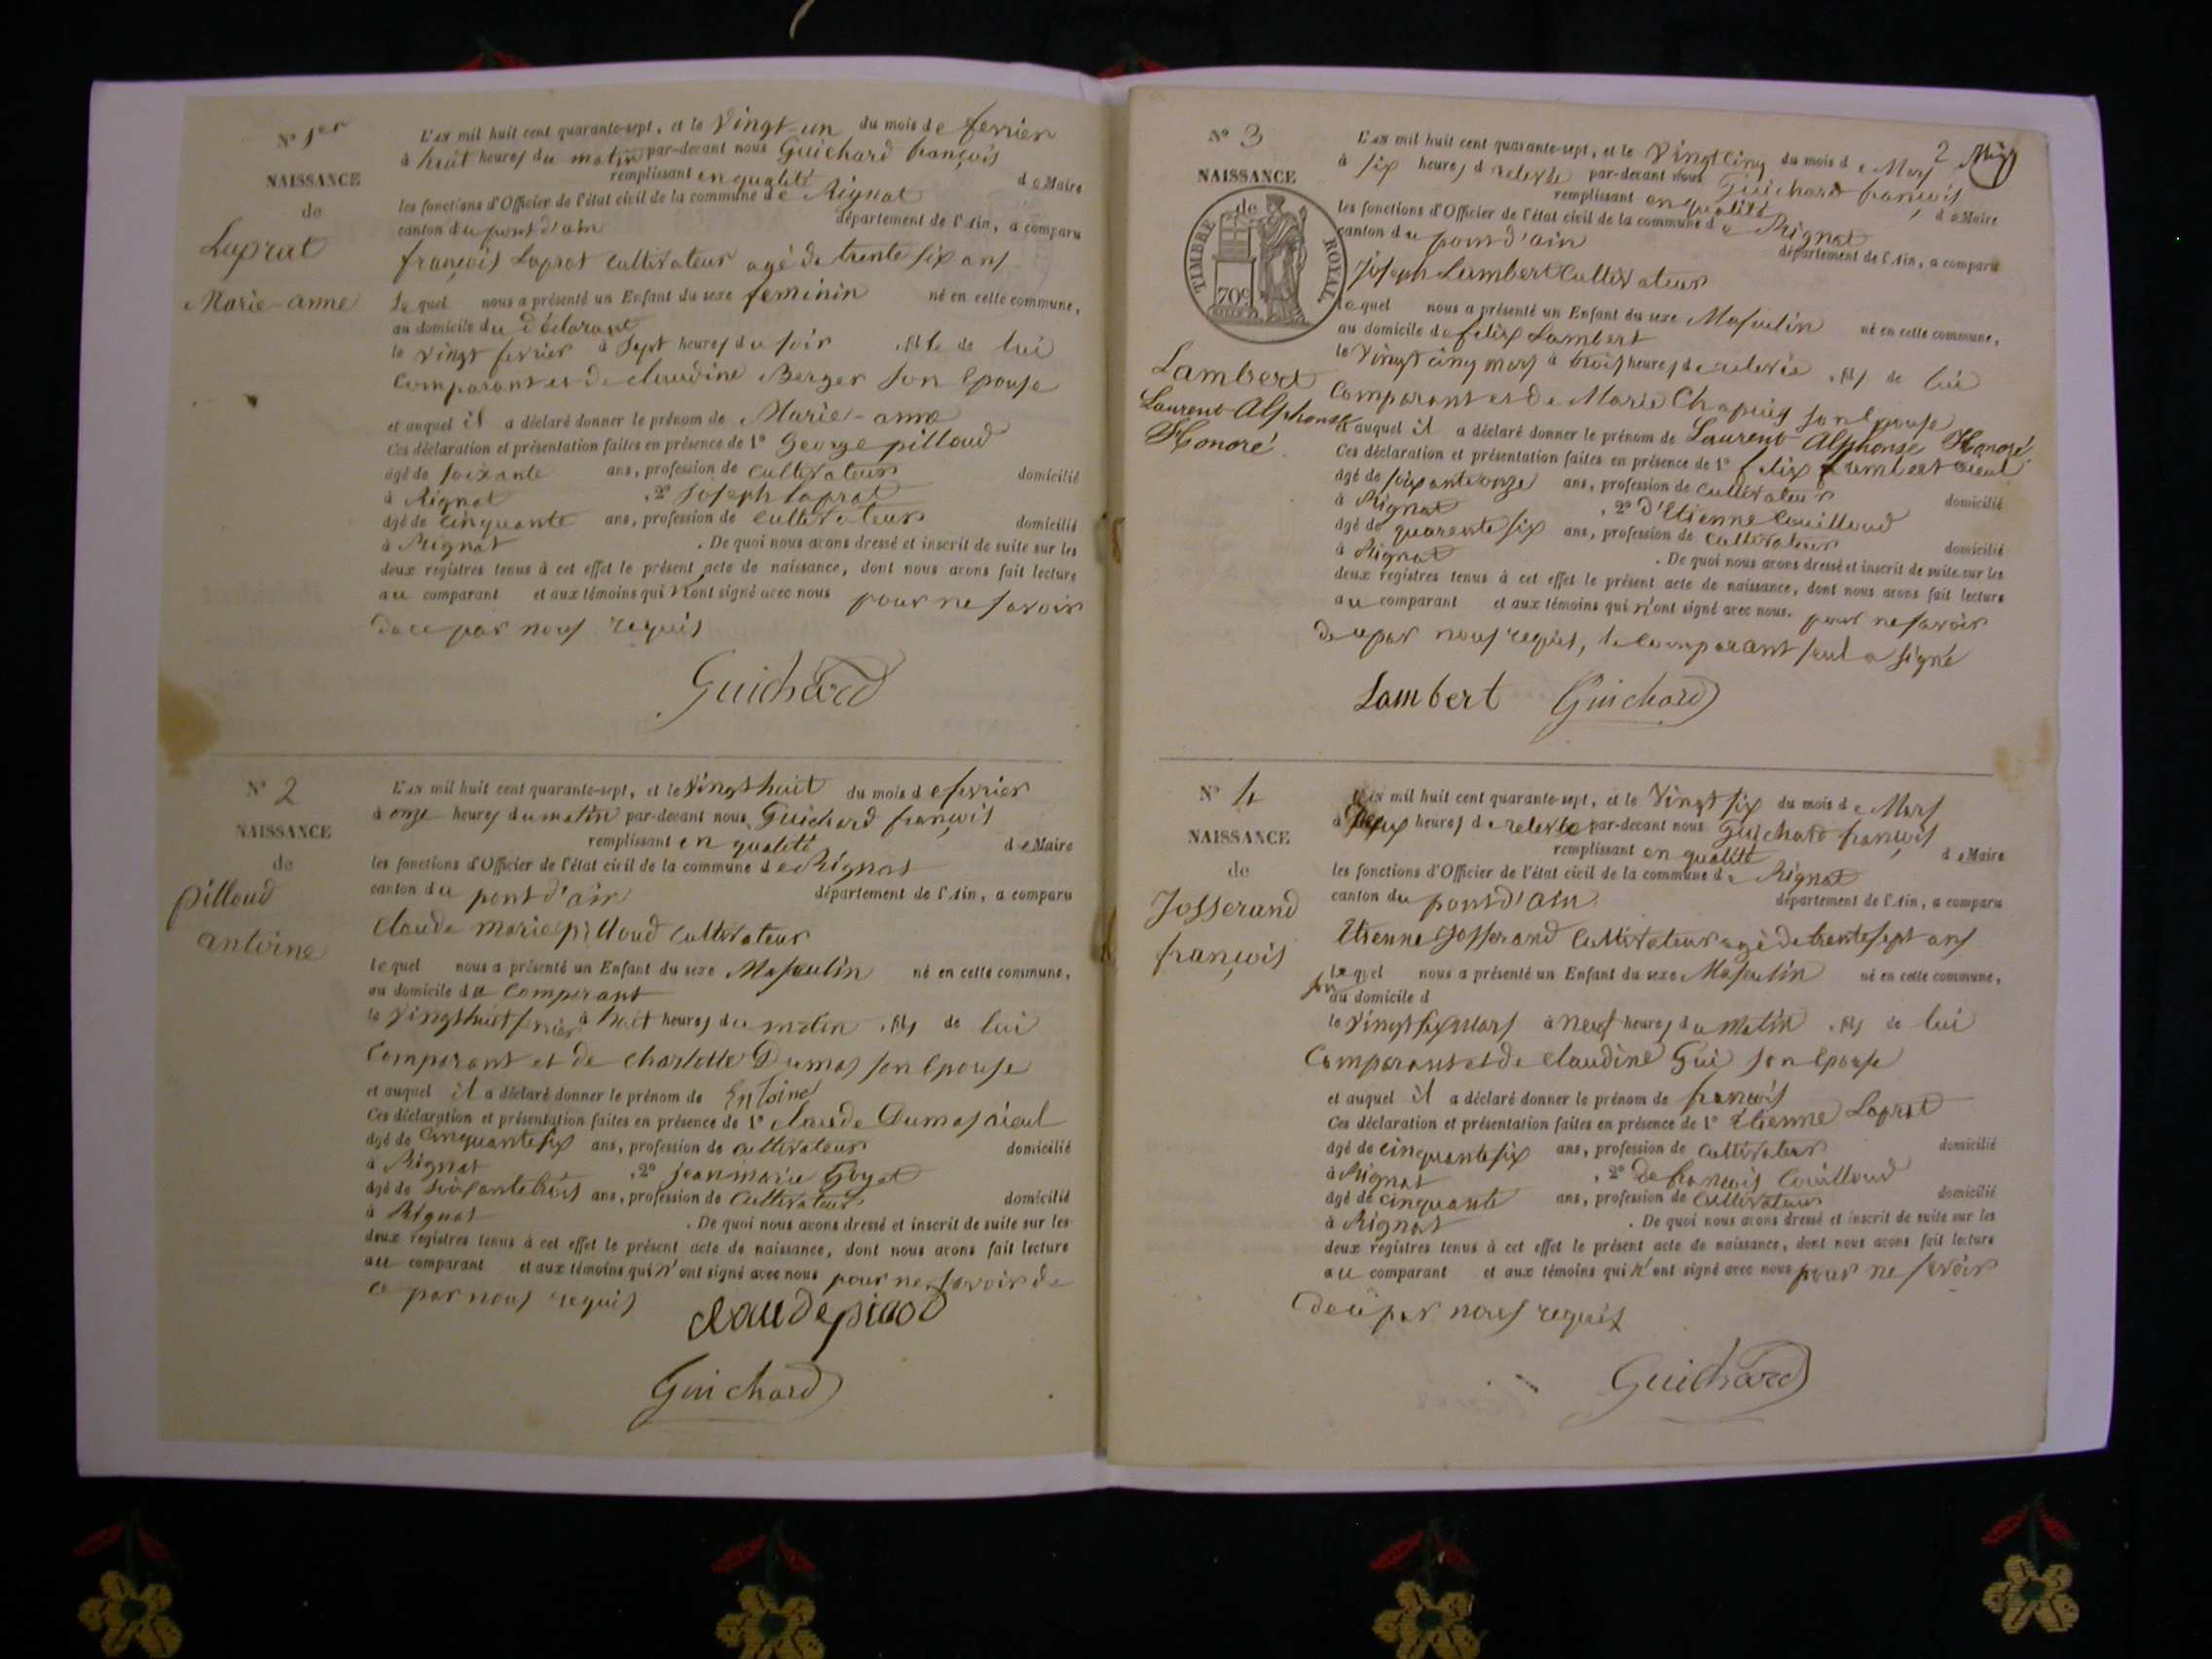 N° 1er
NAISSANCE
de
Laprat
Marie-anne
L'AN mil huit cent quarante-sept, et le Vingt-un du mois de fevrier
à huit heures du matin par-devant nous Guichard françois
remplissant en qualité de Maire
les fonctions d'Officier de l'état civil de la commune de Rignat
canton du pont d'ain département de l'Ain, a comparu
françois Laprat cultivateur agé de trente six ans
Lequel nous a présenté un Enfant du sexe feminin né en cette commune,
au domicile du déclarant
le vingt fevrier à Sept heures du soir , fille de lui
Comparant et de claudine Berger son Epouse
et auquel il a déclaré donner le prénom de Marie-anne
Ces déclaration et présentation faites en présence de 1° George pilloud
âgé de soixante ans, profession de cultivateur domicilié
à Rignat , 2° Joseph Laprat
âgé de cinquante ans, profession de cultivateur domicilié
à Rignat . De quoi nous avons dressé et inscrit de suite sur les
deux registres tenus à cet effet le présent acte de naissance, dont nous avons fait lecture
au comparant et aux témoins qui n'ont signé avec nous pour ne savoir
de ce par nous requis
Guichard
N° 2
NAISSANCE
de
pilloud
antoine
L'AN mil huit cent quarante-sept, et le Vingt huit du mois de fevrier
à onze heures du matin par-devant nous Guichard françois
remplissant en qualité de Maire
les fonctions d'Officier de l'état civil de la commune de Rignat
canton du pont d'ain département de l'Ain, a comparu
claude marie pilloud cultivateur
lequel nous a présenté un Enfant du sexe Masculin né en cette commune,
au domicile du Comparant
le Vingt huit fevrier à huit heures du matin , fils de lui
Comparant et de charlotte Dumas son Epouse
et auquel il a déclaré donner le prénom de Entoine
Ces déclaration et présentation faites en présence de 1° claude Dumas aieul
âgé de Cinquante six ans, profession de cultivateur domicilié
à Rignat , 2° jean marie Goyat
âgé de soixante trois ans, profession de Cultivateur domicilié
à Rignat . De quoi nous avons dressé et inscrit de suite sur les
deux registres tenus à cet effet le présent acte de naissance, dont nous avons fait lecture
au comparant et aux témoins qui n'ont signé avec nous pour ne savoir de
ce par nous requis
claude
Guichard
2
N° 3
NAISSANCE
de
TIMBRE ROYAL
70c
Lambert
Laurent-Alphonse
Honoré
L'AN mil huit cent quarante-sept, et le Vingt Cinq du mois de Mars
à six heures de relevée par-devant nous Guichard françois
remplissant en qualité de Maire
les fonctions d'Officier de l'état civil de la commune de Rignat
canton du pont d'ain département de l'Ain, a comparu
Joseph Lambert Cultivateur
lequel nous a présenté un Enfant du sexe Masculin né en cette commune,
au domicile de felix Lambert
le Vingt cinq mars à trois heures de relevée , fils de lui
Comparant et de Marie Chapuis son Epouse
et auquel il a déclaré donner le prénom de Laurent Alphonse Honoré
Ces déclaration et présentation faites en présence de 1° felix Lambert aieul
âgé de soixante onze ans, profession de cultivateur domicilié
à Rignat , 2° d'Etienne Couilloud
âgé de quarente six ans, profession de cultivateur domicilié
à Rignat . De quoi nous avons dressé et inscrit de suite sur les
deux registres tenus à cet effet le présent acte de naissance, dont nous avons fait lecture
au comparant et aux témoins qui n'ont signé avec nous. pour ne savoir
de ce par nous requis, le comparant seul a signé
Lambert Guichard
N° 4
NAISSANCE
de
Josserand
françois
L'AN mil huit cent quarante-sept, et le Vingt six du mois de Mars
à heures de relevée par-devant nous Guichard françois
remplissant en qualité de Maire
les fonctions d'Officier de l'état civil de la commune de Rignat
canton du pont d'ain département de l'Ain, a comparu
Etienne Josserand Cultivateur agé de trente sept ans
Lequel nous a présenté un Enfant du sexe Masculin né en cette commune,
son au domicile d
le Vingt six Mars à neuf heures du Matin , fils de lui
Comparant et de claudine Gui son Epouse
et auquel il a déclaré donner le prénom de françois
Ces déclaration et présentation faites en présence de 1° Etienne Laprat
âgé de cinquante six ans, profession de cultivateur domicilié
à Rignat , 2° De francois Couilloud
âgé de cinquante ans, profession de cultivateur domicilié
à Rignat . De quoi nous avons dressé et inscrit de suite sur les
deux registres tenus à cet effet le présent acte de naissance, dont nous avons fait lecture
au comparant et aux témoins qui n'ont signé avec nous pour ne savoir
de ce par nous requis
Guichard